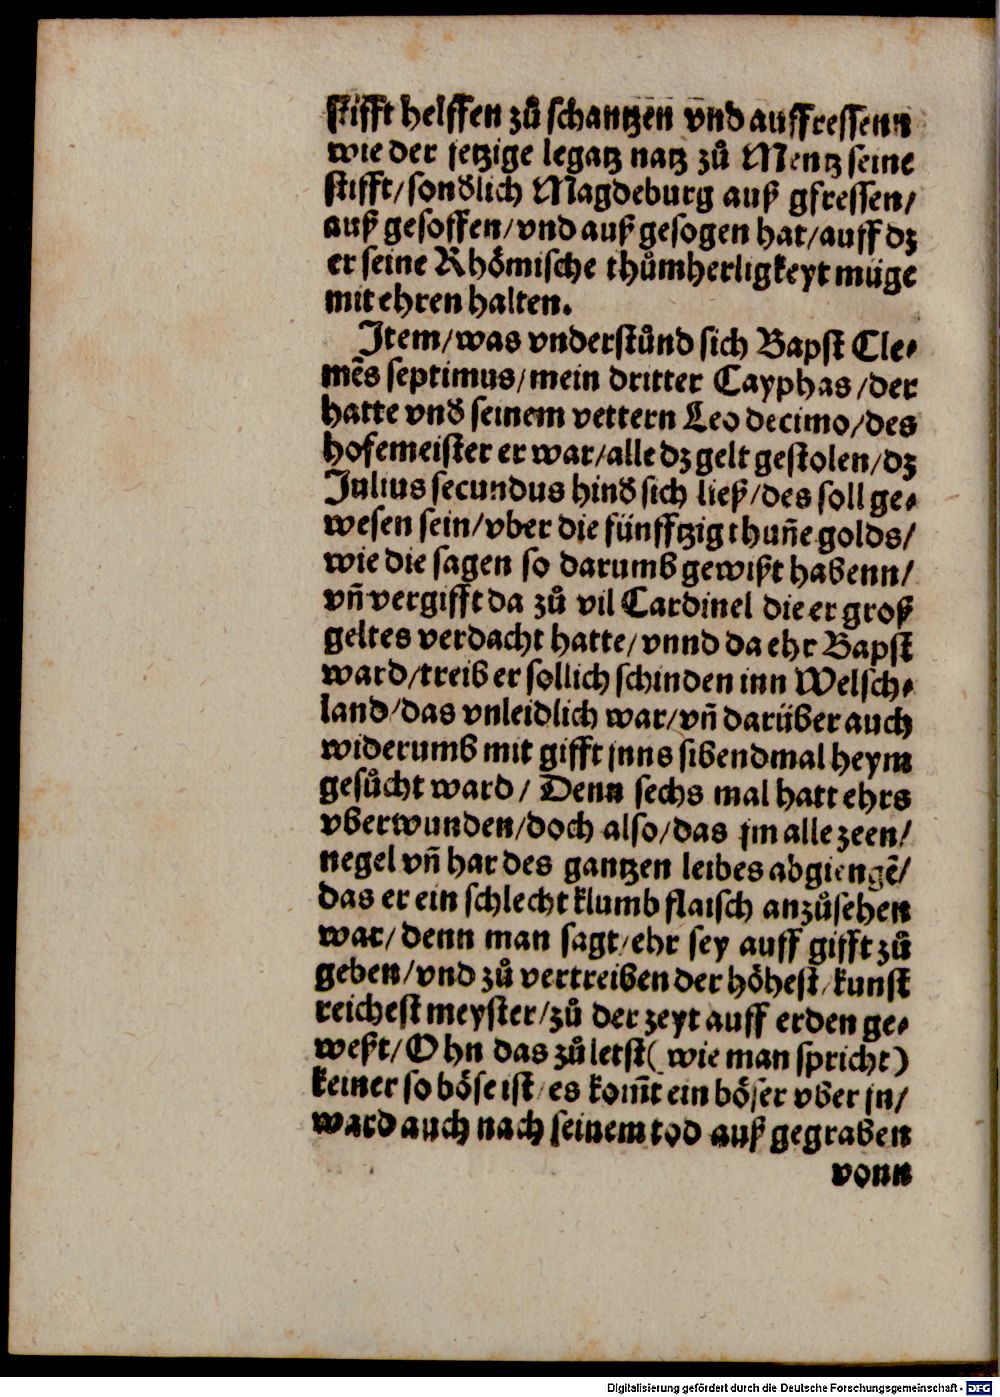 stifft helffen zů schantzen vnd auffressenn
wie der jetzige legatz natz zů Mentz seine
stifft/sondlich Magdeburg auß gfressen/
auß gesoffen/vnd auß gesogen hat/auff dz
er seine Rhömische thůmherligkeyt müge
mit ehren halten.
Item/was vnderstůnd sich Bapst Cle⸗
mẽs septimus/mein dritter Cayphas/der
hatte vnd seinem vettern Leo decimo/des
hofemeister er war/alle dz gelt gestolen/dz
Julius secundus hind sich ließ/des soll ge⸗
wesen sein/vber die fünfftzig thuñe golds/
wie die sagen so darumb gewißt habenn/
vñ vergifft da zů vil Cardinel die er groß
geltes verdacht hatte/vnnd da ehr Bapst
ward/treib er sollich schinden inn Welsch⸗
land/das vnleidlich war/vñ darüber auch
widerumb mit gifft jnns sibendmal heym
gesůcht ward/ Denn sechs mal hatt ehrs
vberwunden/doch also/das jm alle zeen/
negel vñ har des gantzen leibes abgiengẽ/
das er ein schlecht klumb flaisch anzůsehen
war/denn man sagt/ehr sey auff gifft zů
geben/vnd zů vertreiben der höhest/kunst
reichest meyster/zů der zeyt auff erden ge⸗
weßt/Ohn das zů letst(wie man spricht)
keiner so böse ist/es kom̃t ein böser vber jn/
ward auch nach seinem tod auß gegraben
vonn
Digitalisierung gefördert durch die Deutsche Forschungsgemeinschaft - DFG